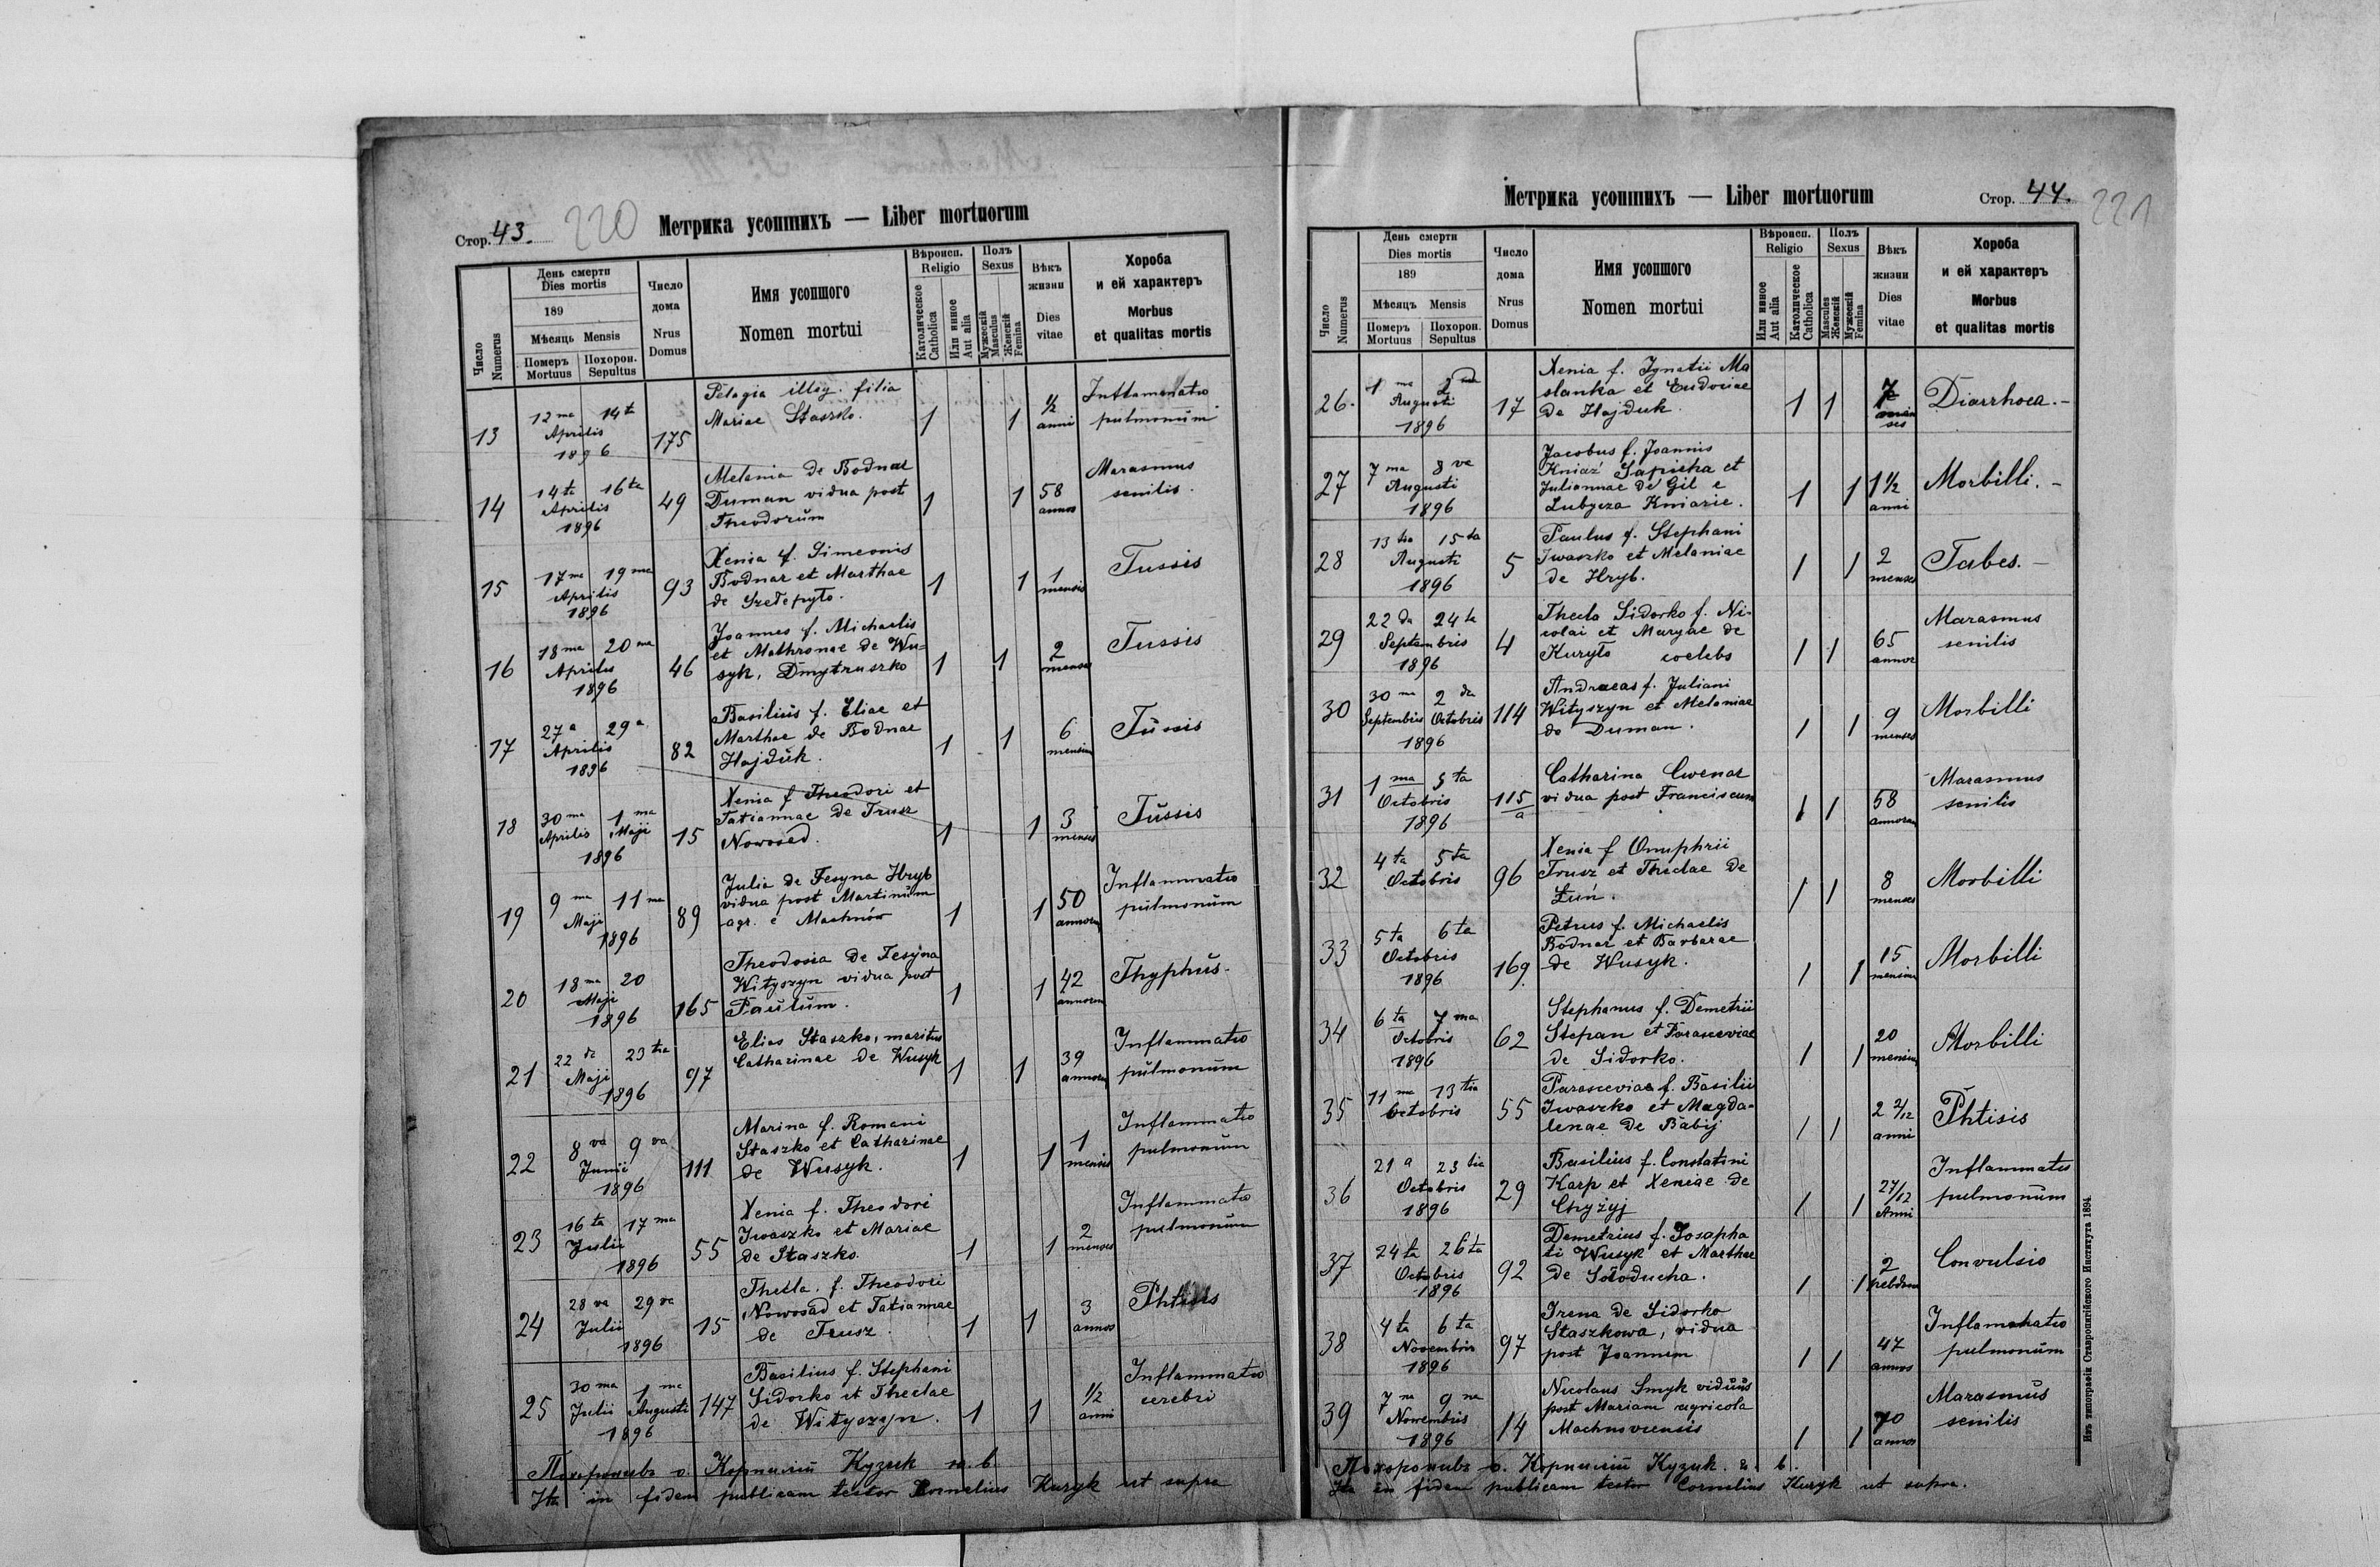 Стор. 43. 220
Метрика усопшихъ — Liber mortuorum
Число
Numerus
День смерти
Dies mortis
189
Мѣсяцъ Mensis
Померъ Mortuus
Похорон. Sepultus
Число дома
Nrus Domus
Имя усопшого
Nomen mortui
Вѣроисп.
Religio
Католическое Catholica
Или инное Aut alia
Полъ
Sexus
Мужескій Masculus
Женскій Femina
Вѣкъ жизни
Dies vitae
Хороба
и ей характеръ
Morbus
et qualitas mortis
13 12ma 14ta Aprilis 1896 175
Pelagia illeg. filia
Mariae Staszko.
1 1 1/2 anni
Inflamatio
pulmonum
14 14ta 16ta Aprilis 1896 49
Melania de Bodnar
Duman vidua post
Theodorum
1 1 58 annos
Marasmus
senilis.
15 17ma 19ma Aprilis 1896 93
Xenia f. Simeonis
Bodnar et Marthae
de
1 1 1 mensis
Tussis
16 18ma 20ma Aprilis 1896 46
Joannes f. Michaelis
et Mathronae de Wu=
syk, Dmytruszko
1 1 2 menses
Tussis
17 27a 29a Aprilis 1896 82
Basilius f. Eliae et
Marthae de Bodnar
Hajduk.
1 1 6 mensium
Tussis
18 30ma Aprilis 1ma Maji 1896 15
Xenia f Theodori et
Tatiannae de Trusz
Nowosad.
1 1 3 menses
Tussis
19 9ma 11ma Maji 1896 89
Julia de Fesyna Hryb
vidua post Martinum
agr. e Machnów
1 1 50 annorum
Inflammatio
pulmonum
20 18ma 20 Maji 1896 165
Theodosia de Fesyna
Wityszyn vidua post
Paulum.
1 1 42 annorum
Thyphus.
21 22da 23tia Maji 1896 97
Elias Staszko, maritus
Catharinae de Wusyk
1 1 39 annorum
Inflammatio
pulmonum
22 8va 9va Junii 1896 111
Marina f. Romani
Staszko et Catharinae
de Wusyk.
1 1 1 mensis
Inflammatio
pulmonum
23 16ta 17ma Julii 1896 55
Xenia f. Theodori
Iwaszko et Mariae
de Staszko.
1 1 2 menses
Inflammatio
pulmonum
24 28va 29va Julii 1896 15
Thecla. f. Theodori
Nowosad et Tatiannae
de Trusz.
1 1 3 annos
Phtisis
25 30ma Julii 1ma Augusti 1896 147
Basilius f. Stephani
Sidorko et Theclae
de Wityszyn.
1 1 1/2 anni
Inflammatio
cerebri
Похоронивъ о. Корнилій Кузык
Ita in fidem publicam testor Cornelius Kuzyk ut supra
Метрика усопшихъ — Liber mortuorum
Стор. 44. 221
Число
Numerus
День смерти
Dies mortis
189
Мѣсяцъ Mensis
Померъ Mortuus
Похорон. Sepultus
Число дома
Nrus Domus
Имя усопшого
Nomen mortui
Вѣроисп.
Religio
Или инное Aut alia
Католическое Catholica
Полъ
Sexus
Masculus Женскій
Мужескій Femina
Вѣкъ жизни
Dies vitae
Хороба
и ей характеръ
Morbus
et qualitas mortis
26. 1ma 2da Augusti 1896 17
Xenia f. Ignatii Ma
slanka et Eudociae
de Hajduk.
1 1 7 menses
Diarrhoea.-
27 7ma 8va Augusti 1896
Jacobus f. Joannis
Kniaź Sapieha et
Juliannae de Gil e
Lubycza Kniazie.
1 1 1 1/2 anni
Morbilli.-
28 13tia 15ta Augusti 1896 5
Paulus f. Stephani
Iwaszko et Melaniae
de Hryb.
1 1 2 menses
Tabes.-
29 22da 24ta Septembris 1896 4
Thecla Sidorko f. Ni-
colai et Maryae de
Kuryło coelebs
1 1 65 annos
Marasmus
senilis
30 30ma Septembris 2da Octobris 1896 114
Andraeas f. Juliani
Wityszyn et Melaniae
de Duman.
1 1 9 menses
Morbilli
31 1ma 5ta Octobris 1896 115/a
Catharina Cwenar
vidua post Franciscum
1 1 58 annorum
Marasmus
senilis
32 4ta 5ta Octobris 96
Xenia f Onuphrii
Trusz et Theclae de
Łuń.
1 1 8 menses
Morbilli
33 5ta 6ta Octobris 1896 169.
Petrus f. Michaelis
Bodnar et Barbarae
de Wusyk.
1 1 15 mensium
Morbilli
34 6ta 7ma Octobris 1896 62
Stephanus f. Demetrii
Stepan et Parasceviae
de Sidorko.
1 1 20 mensium
Morbilli
35 11ma 13tia Octobris 55
Parasceviae f. Basilii
Iwaszko et Magda-
lenae de Babij
1 1 2 2/12 anni
Phtisis
36 21a 23tia Octobris 1896 29
Basilius f. Constatini
Karp et Xeniae de
Chyżyj
1 1 2 7/12 Anni
Inflammatio
pulmonum
37 24ta 26ta Octobris 1896 92
Demetrius f. Josapha
ti Wusyk et Marthae
de Sołoducha.
1 1 2
Convulsio
38 4ta 6ta Novembris 1896 97
Irena de Sidorko
Staszkowa, vidua
post Joannem
1 1 47 annos
Inflamatio
pulmonum
39 7ma 9na Novembris 1896 14
Nicolaus Smyk viduus
post Mariam agricola
Machnoviensis
1 1 70 annos
Marasmus
senilis
Похоронивъ о. Корнилій Кузык.
Ita in fidem publicam testor Cornelius Kuzyk ut supra.
Изъ типографіи Ставропигійского Института 1894